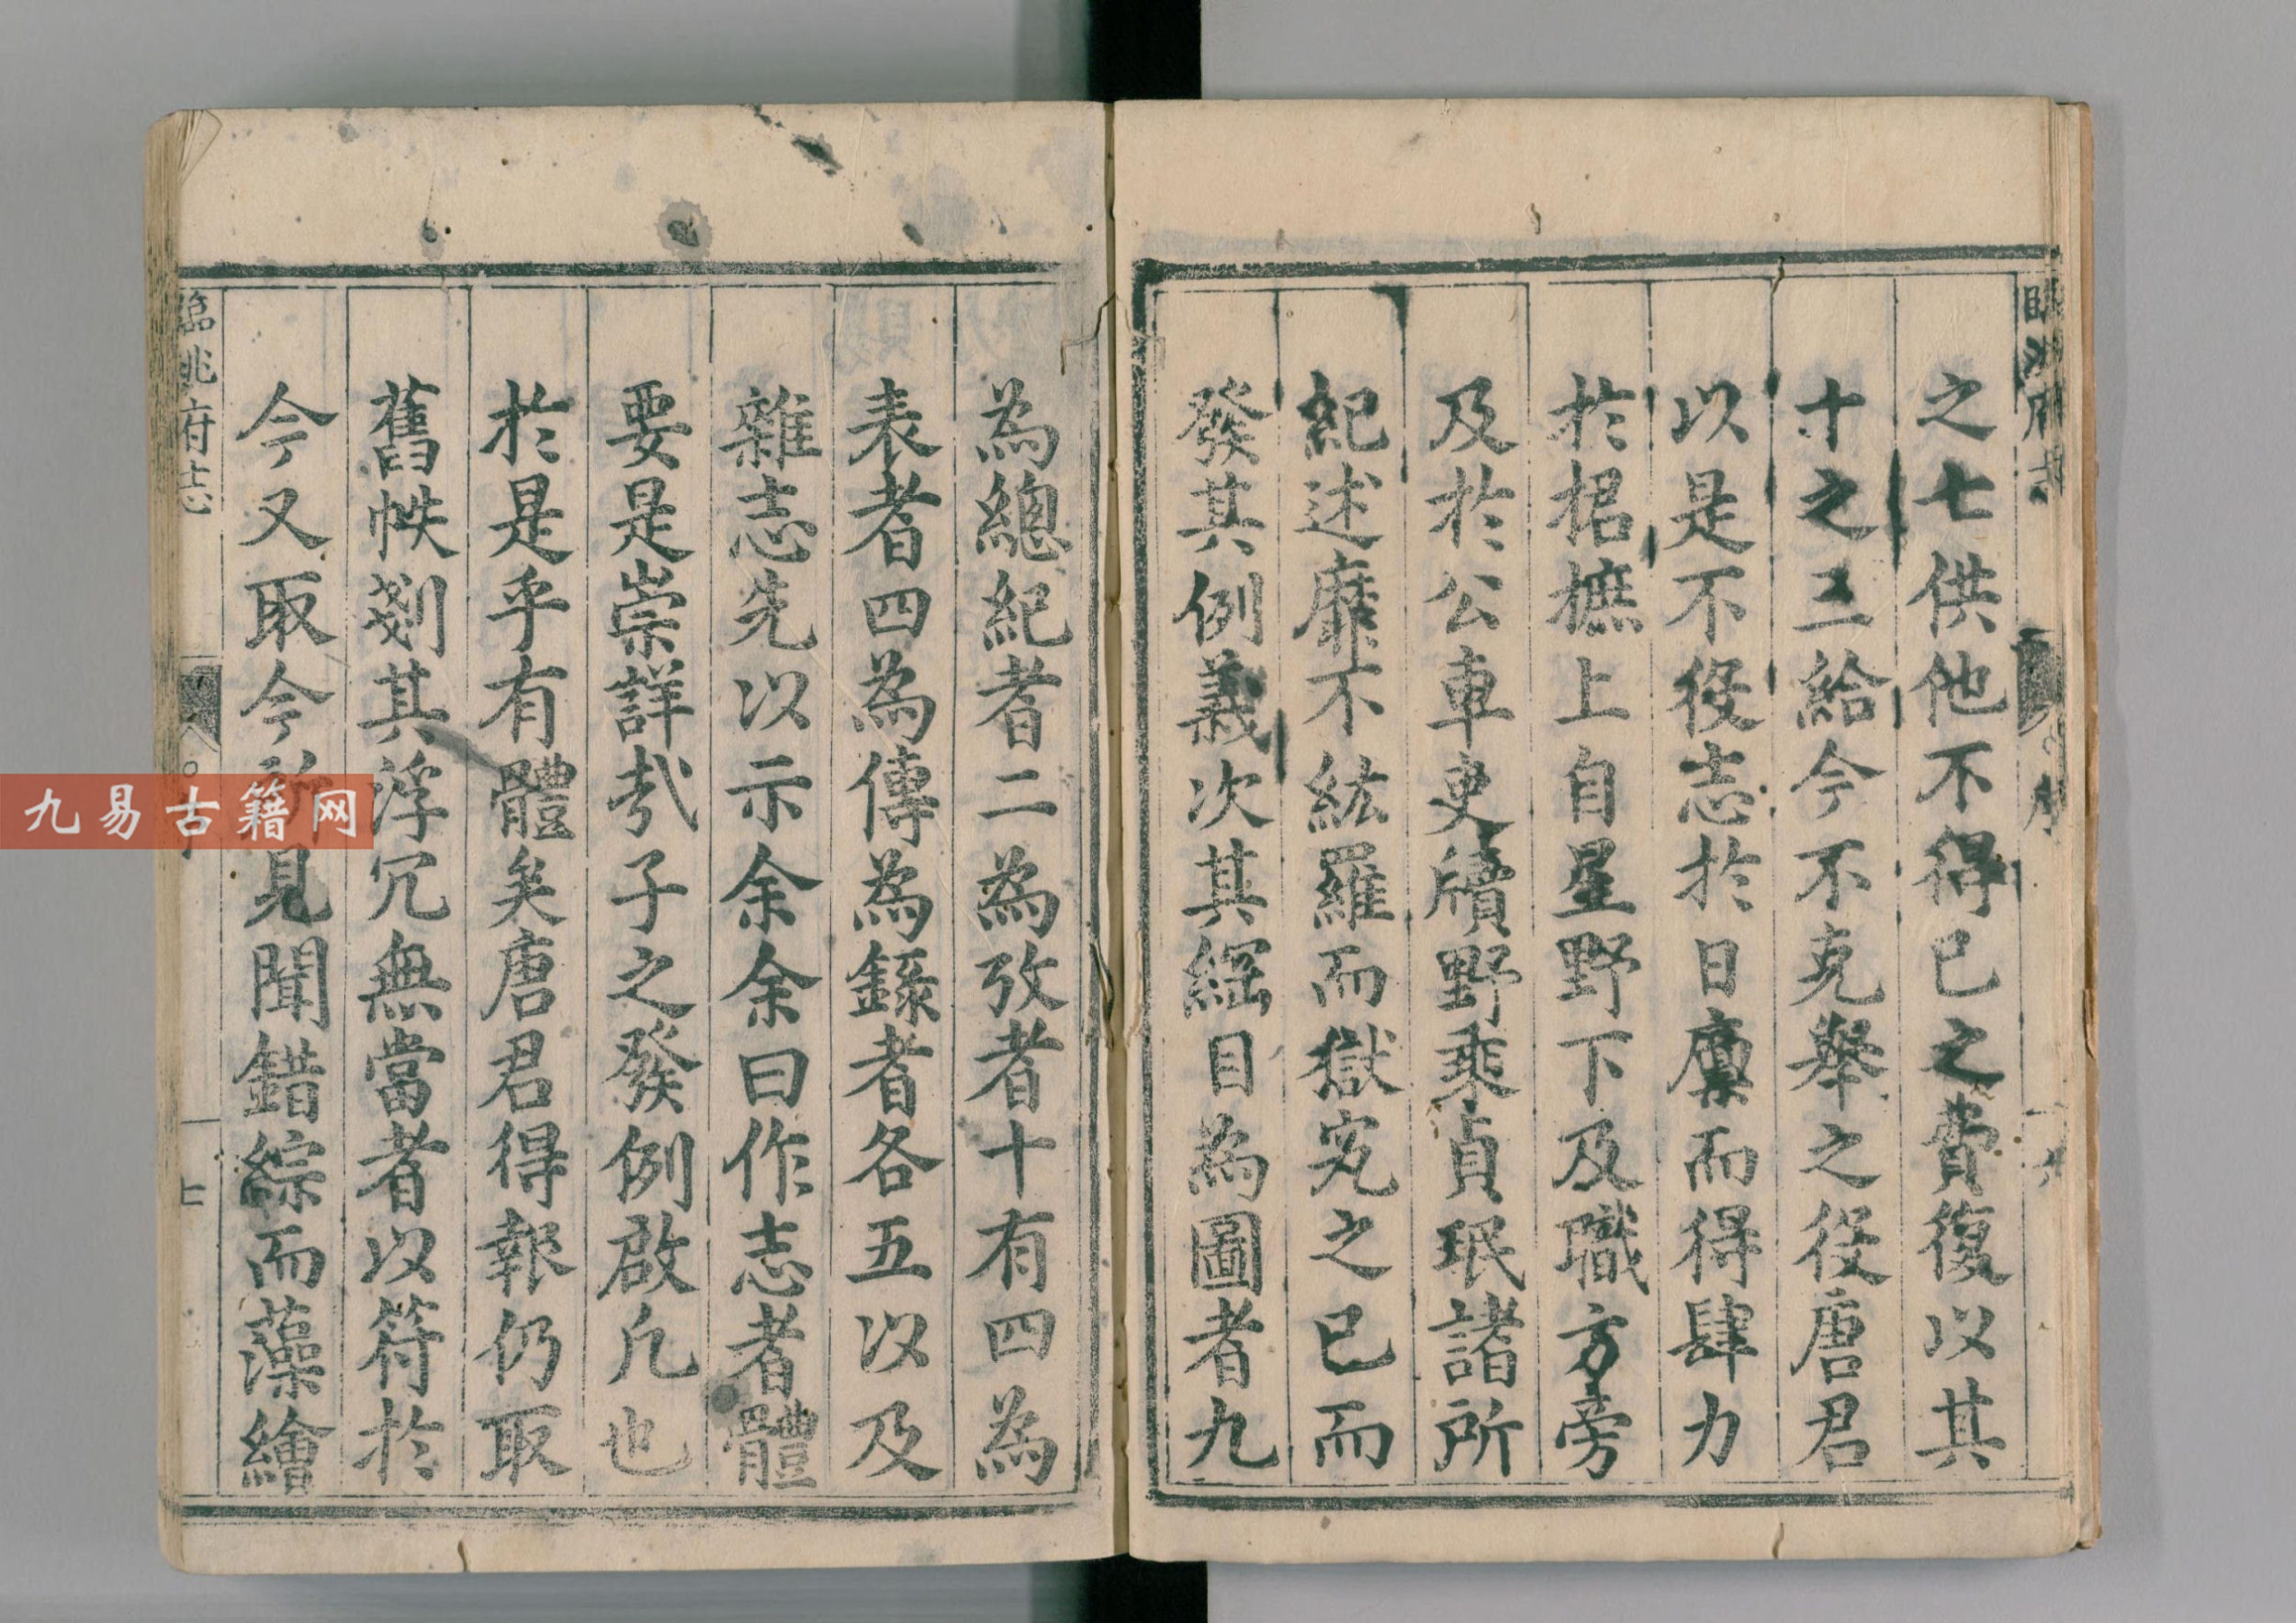 臨洮府志
序
之七供他不得已之費復以其
十之三給今不克舉之役唐君
以是不役志於日廩而得肆力
於捃摭上自星野下及職方旁
及於公車吏牘野乘貞珉諸所
紀述靡不紘羅而獄究之已而
發其例義次其綱目為圖者九
為總紀者二為攷者十有四為
表者四為傳為錄者各五以及
雜志先以示余余曰作志者體
要是崇詳哉子之發例啟凡也
於是乎有體矣唐君得報仍取
舊帙剗其浮冗無當者以符於
今又取今所見聞錯綜而藻繪
臨洮府志
七
九易古籍网